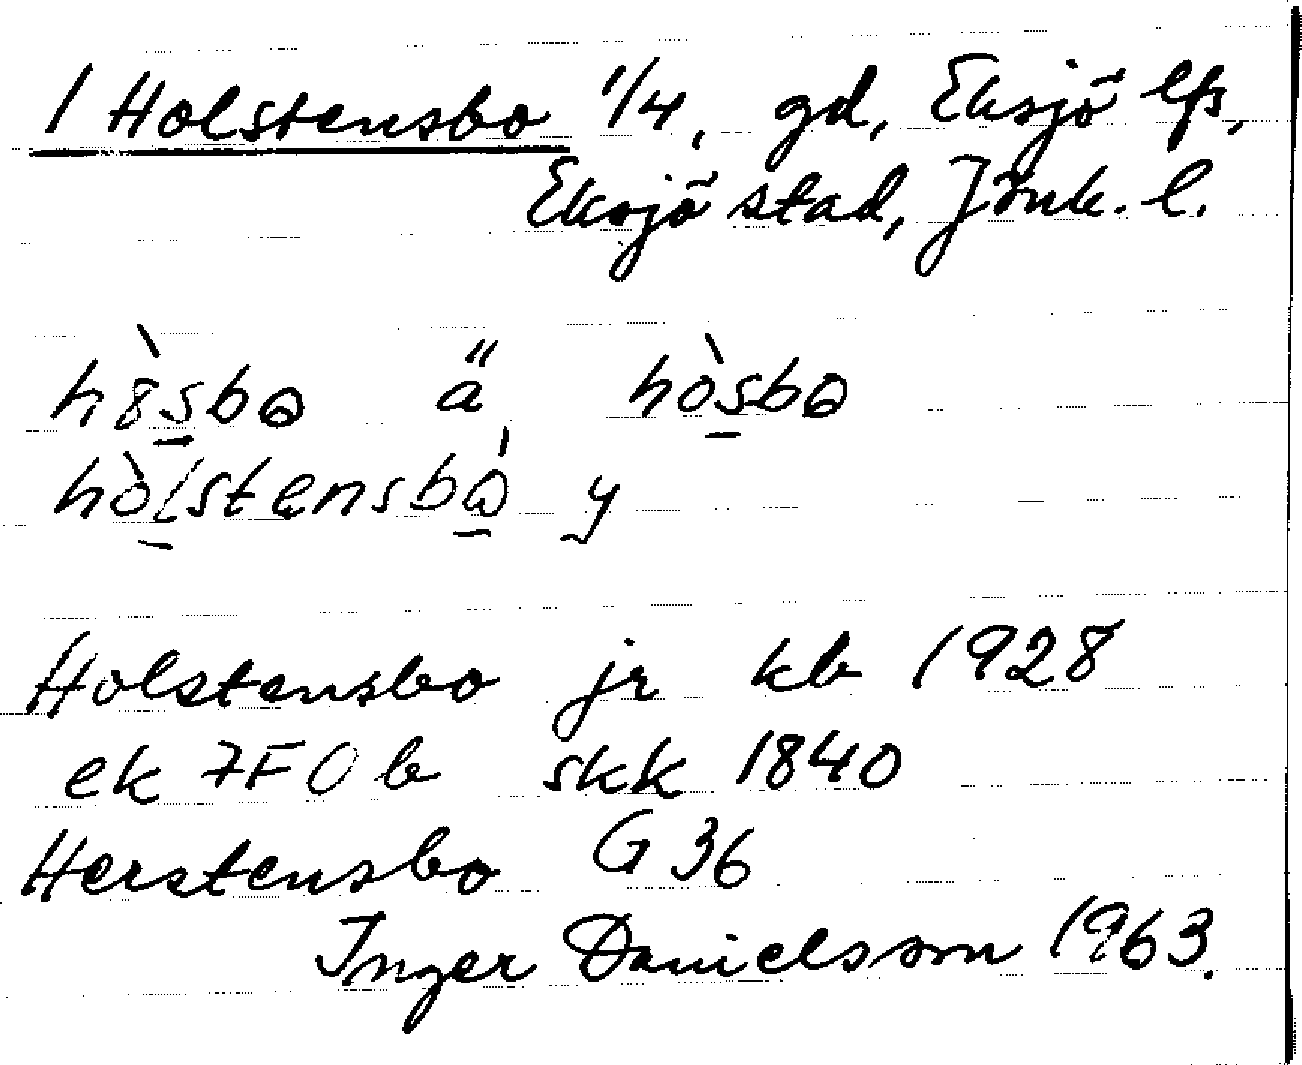 1 Holstensbo 1/4, gd, Eksjö lfs,
Eksjö stad, Jönk. l.
hòsbo ä hòsbo
hòlstensbó y
Holstensbo jr kb 1928
ek 7F0b skk 1840
Herstensbo G 36
Inger Danielsson 1963.